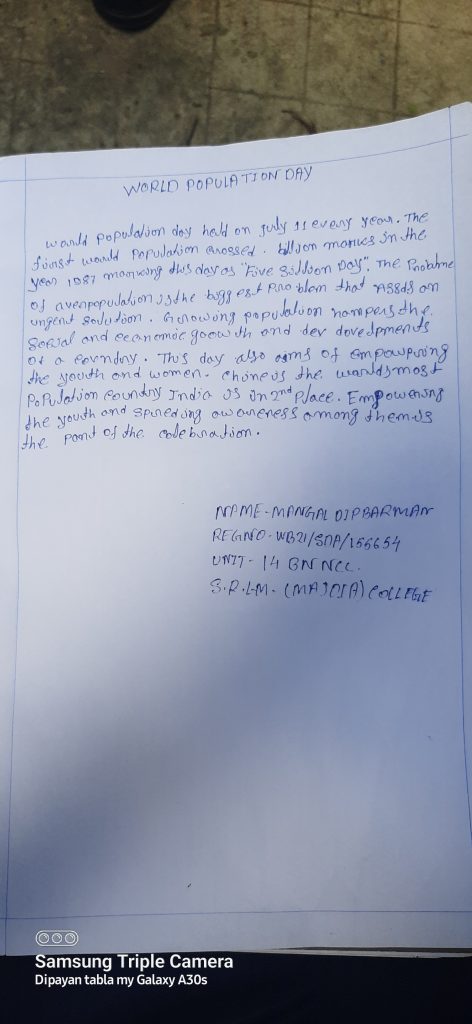 WORLD POPULATION DAY
would population day held on July 11 every year. The
first would Population crossed. billion marks in the
year 1987 marking this day as "Five Billion Day". The Problme
of overpopulation is the biggest Problem that needs an
urgent solution. Growing population hampers the
social and economic goowth and dev dovedpments
of a country. This day also aims of empowpuring
the youth and women. China is the worlds most
Population country India is in 2nd Place. Empowering
the youth and spireding awareness among them is
the part of the celebration.
NAME - MANGAL DIP BARMAN
REG NO - WB21/SDA/156654
UNIT - 14 BN NCC.
S.R.L.M. (MAJDIA) COLLEGE
Samsung Triple Camera
Dipayan tabla my Galaxy A30s